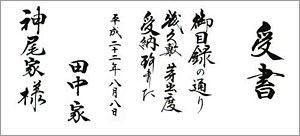 受書
御目録の通り
幾久敷芽出度
受納致しました
平成二十二年八月八日
田中家
神尾家様